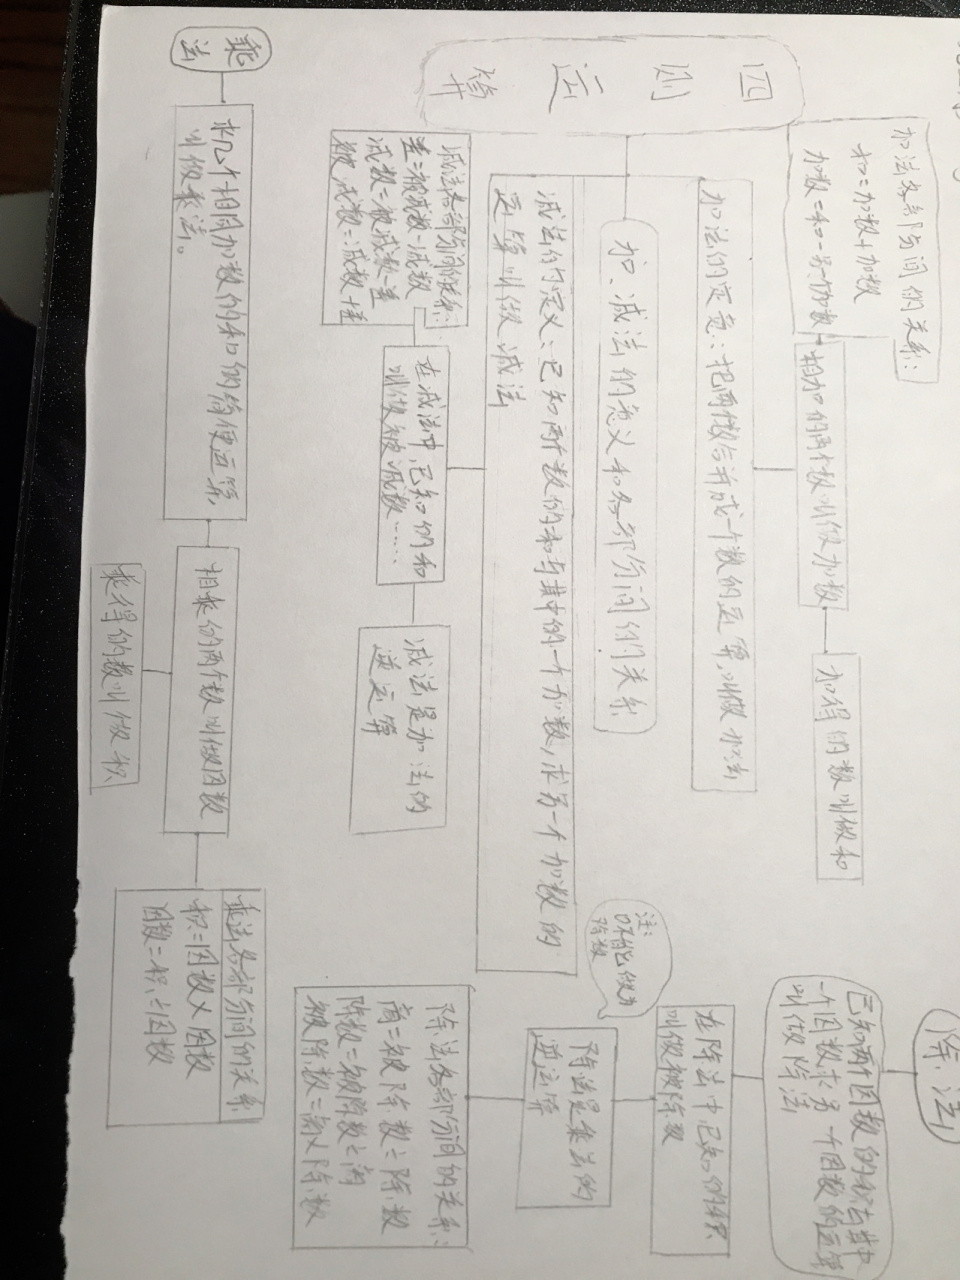 四则运算
加法各部分间的关系:
和=加数+加数
加数=和-另一加数
相加的两个数叫做加数
加得的数叫做和
加法的定意:把两个数合并成一个数的运算,叫做加法
加、减法的意义和各部分间的关系
减法的定义:已知两个数的和与其中的一个加数,求另一个加数的
运算叫做减法
减法各部分间的关系:
差=被减数-减数
减数=被减数-差
被减数=减数+差
在减法中,已知的和
叫做被减数……
减法是加法的
逆运算
乘
法
求几个相同加数的和的简便运算,
叫做乘法。
相乘的两个数叫做因数
乘得的数叫做积
乘法各部分间的关系
积=因数×因数
因数=积÷因数
除法
已知两个因数的积与其中
一个因数求另一个因数的运算
叫做除法
在除法中,已知的积
叫做被除数
注:
0不能做为
除数
除法是乘法的
逆运算
除法各部分间的关系:
商=被除数÷除数
除数=被除数÷商
被除数=商×除数